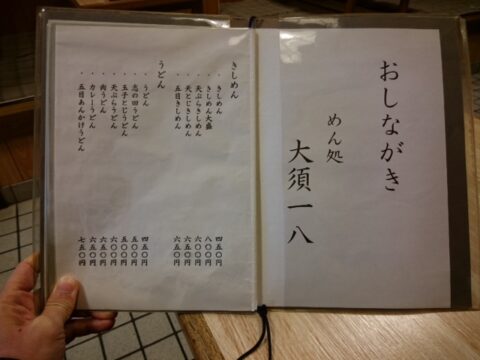 おしながき
めん処
大須一八
きしめん
・きしめん 四五〇円
・きしめん大盛 八〇〇円
・天ぷらきしめん 六〇〇円
・天とじきしめん 六五〇円
・五目きしめん 六五〇円
うどん
・うどん 四五〇円
・志の田うどん 五〇〇円
・玉子とじうどん 五〇〇円
・天ぷらうどん 六〇〇円
・肉うどん 六五〇円
・カレーうどん 六五〇円
・五目あんかけうどん 七五〇円